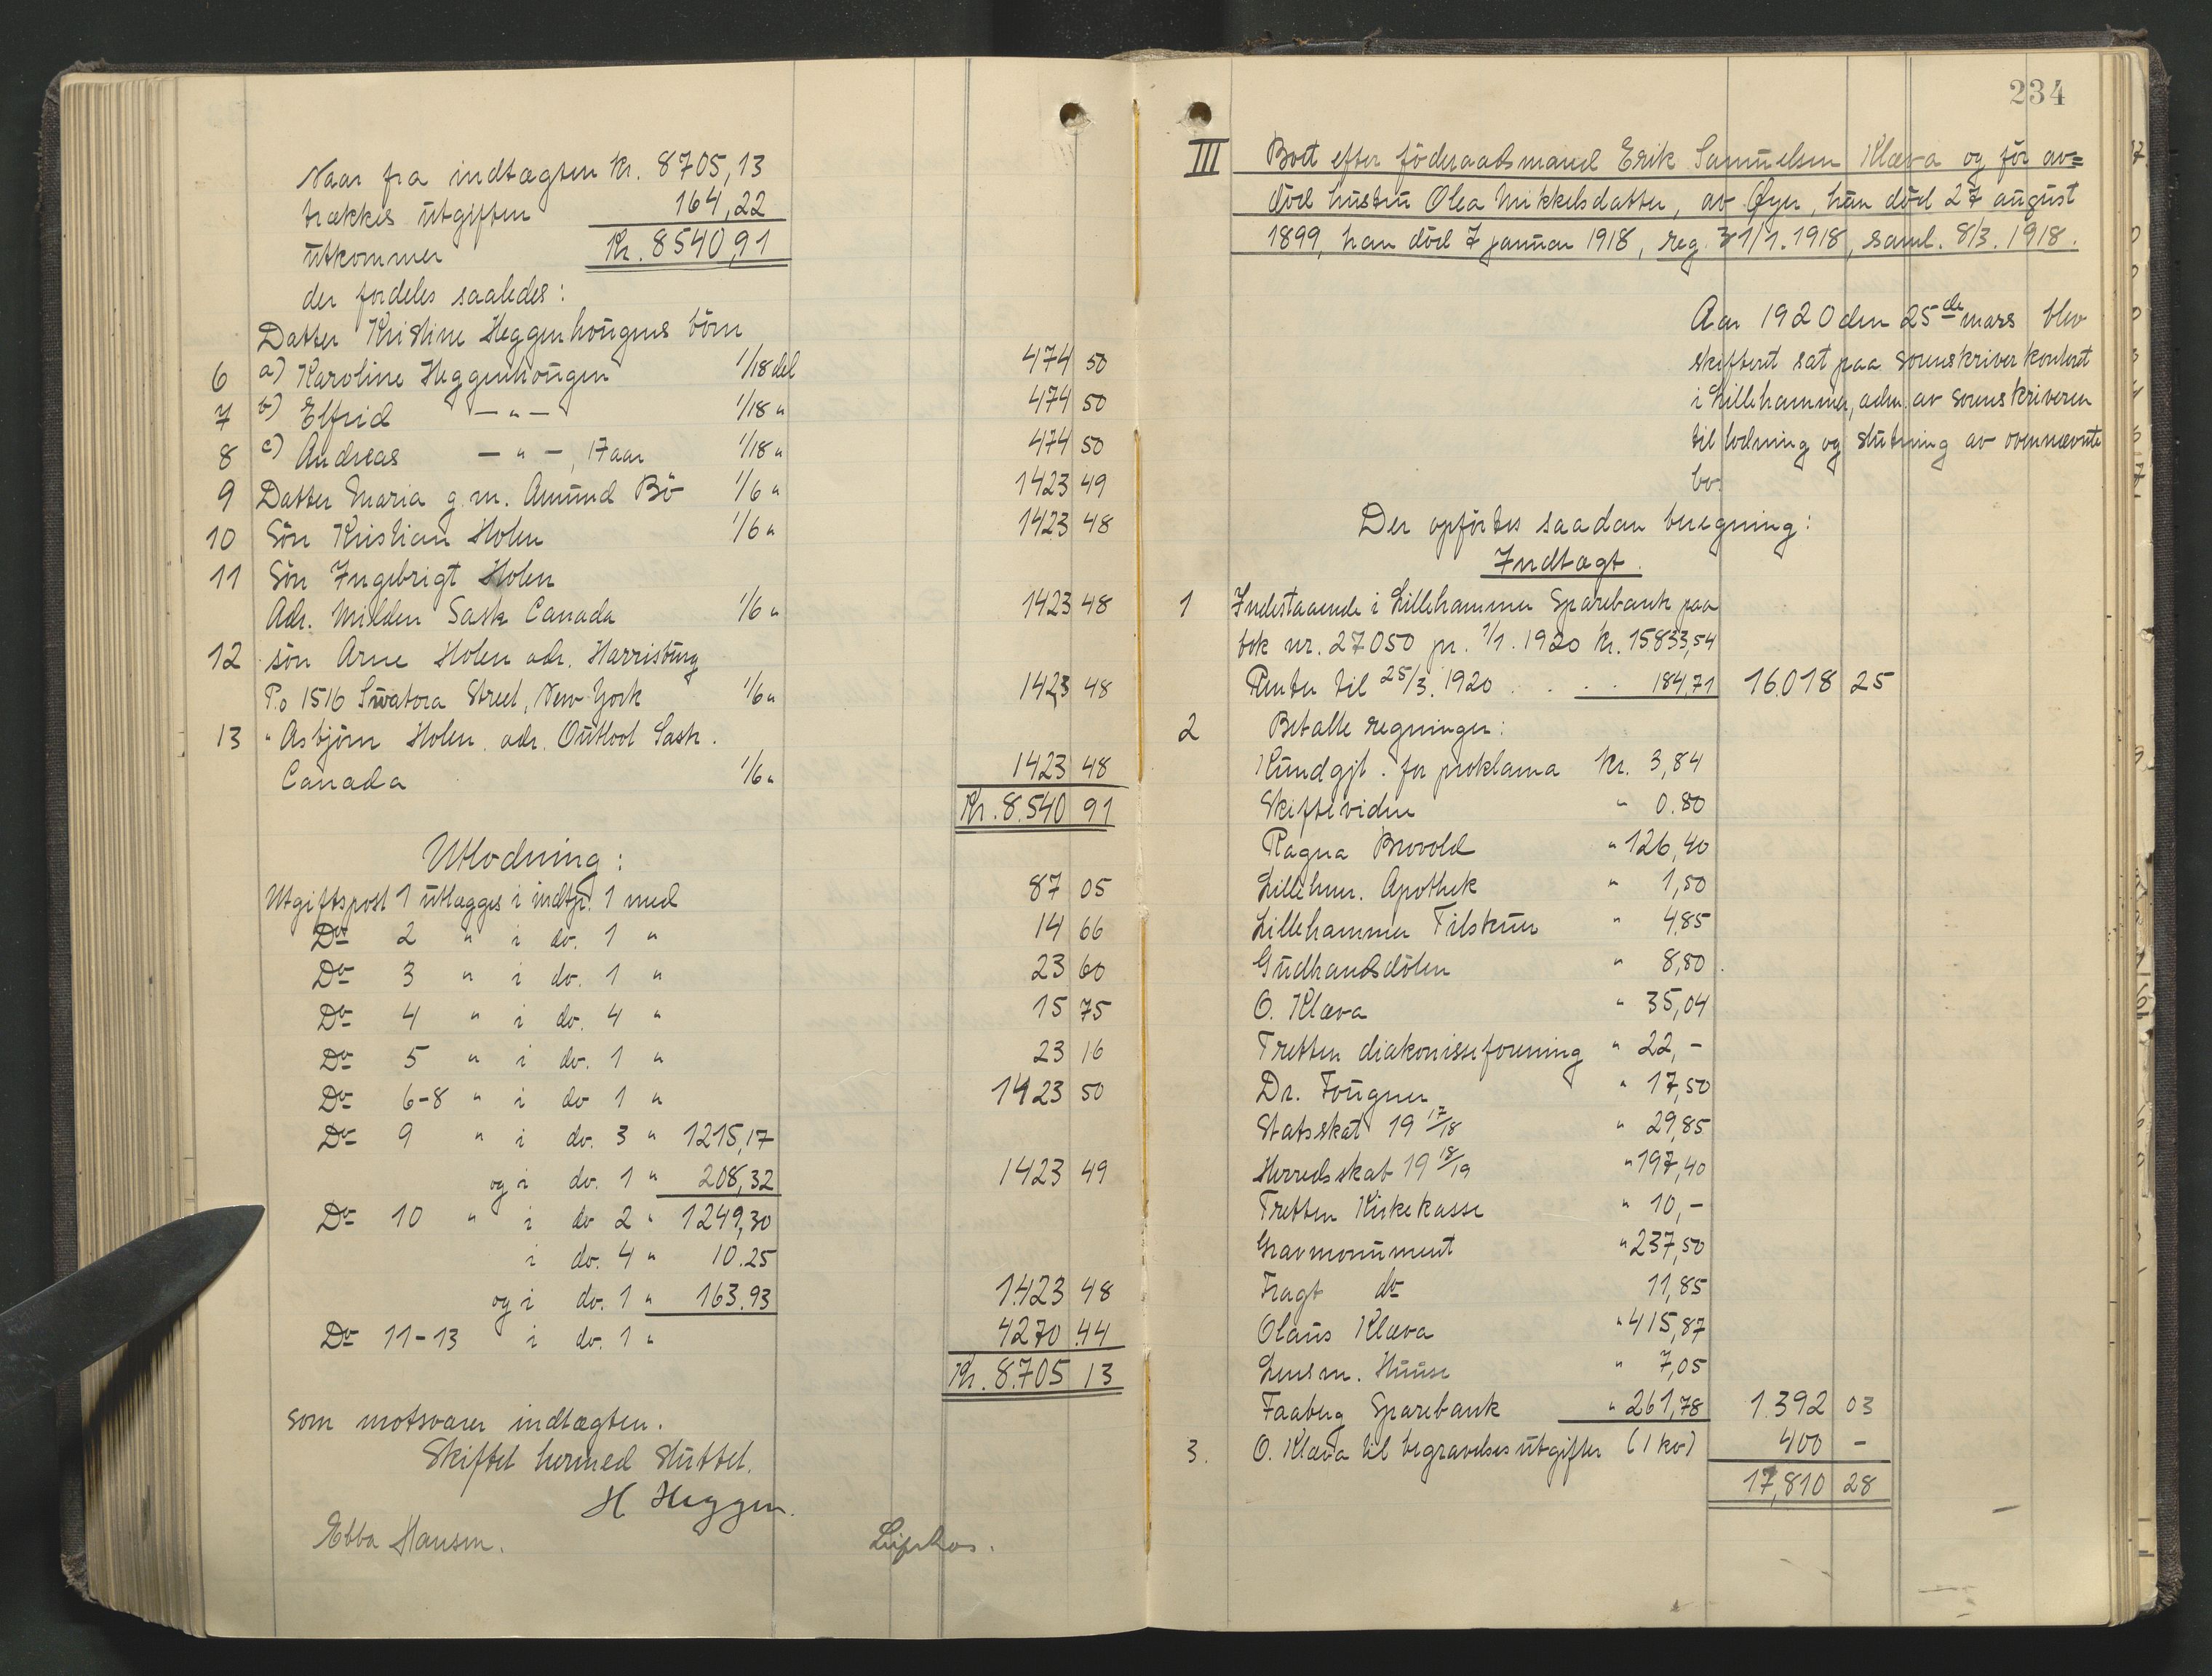 Naar fra indtægten Kr. 8705,13
trækkes utgiften 164,22
utkommer Kr. 8540,91
der fordeles saaledes:
Datter Kristine Heggenhougens börn
6 a) Karoline Heggenhougen 1/18 del 474 50
7 b) Elfrid —"— 1/18 " 474 50
8 c) Andreas —"—, 17 aar 1/18 " 474 50
9 Datter Maria g. m. Amund Bö 1/6 " 1423 49
10 Sön Kristian Holen 1/6 " 1423 48
11 Sön Ingebrigt Holen
Adr. Milden Sask Canada 1/6 " 1423 48
12 sön Arne Holen adr. Harrisburg
P.o 1516 Swatora Street, New York 1/6 " 1423 48
13 " Asbjörn Holen adr. Outlook Sask.
Canada 1/6 " 1423 48
Kr. 8.540 91
Utlodning:
Utgiftspost 1 utlægges i indtp. 1 med 87 05
Do 2 " i do. 1 " 14 66
Do 3 " i do. 1 " 23 60
Do 4 " i do. 4 " 15 75
Do 5 " i do. 1 " 23 16
Do 6-8 " i do 1 " 1423 50
Do 9 " i do. 3 " 1215,17
og i do. 1 " 208,32 1423 49
Do 10 " i do 2 " 1249,30
i do. 4 " 10.25
og i do. 1 " 163.93 1.423 48
Do 11-13 i do. 1 " 4270.44
Kr. 8.705 13
som motsvarer indtægten.
Skiftet hermed sluttet.
H Heggen.
Ebba Hansen.
234
III Boet efter föderaadsmand Erik Samuelsen Klæva og før av=
död hustru Olea Mikkelsdatter, av Øyer, hun död 27 august
1899, han död 7 januar 1918, reg. 31/1. 1918, saml. 8/3. 1918.
Aar 1920 den 25de mars blev
skifteret sat paa sorenskriverkontoret
i Lillehammer, adm. av sorenskriveren
til lodning og slutning av ovennævnte
bo.
Der opförtes saadan beregning:
Indtægt.
1 Indestaaende i Lillehammer Sparebank paa
bok nr. 27050 pr. 1/1. 1920 Kr. 15833,54
Renter til 25/3. 1920 . . . . 184,71 16.018 25
2 Betalte regninger:
Kundgjt. for proklama Kr. 3,84
Skiftevidne " 0.80
Ragna Brovold " 126,40
Lillehmr. Apothek " 1,50
Lillehammer Tilskuer " 4,85
Gudbrandsdölen " 8,80
O. Klæva " 35,04
Tretten diakonisseforening " 22,-
Dr. Fougner " 17,50
Statsskat 19 17/18 " 29,85
Herredsskat 19 18/19 " 197,40
Tretten Kirkekasse " 10,-
Gravmonument " 237,50
Fragt do 11,85
Olaus Klæva " 415,87
Lensm. Huuse " 7,05
Faaberg Sparebank " 261,78 1.392 03
3. O. Klæva til begravelsesutgifter (1 kv) 400 -
17,810 28